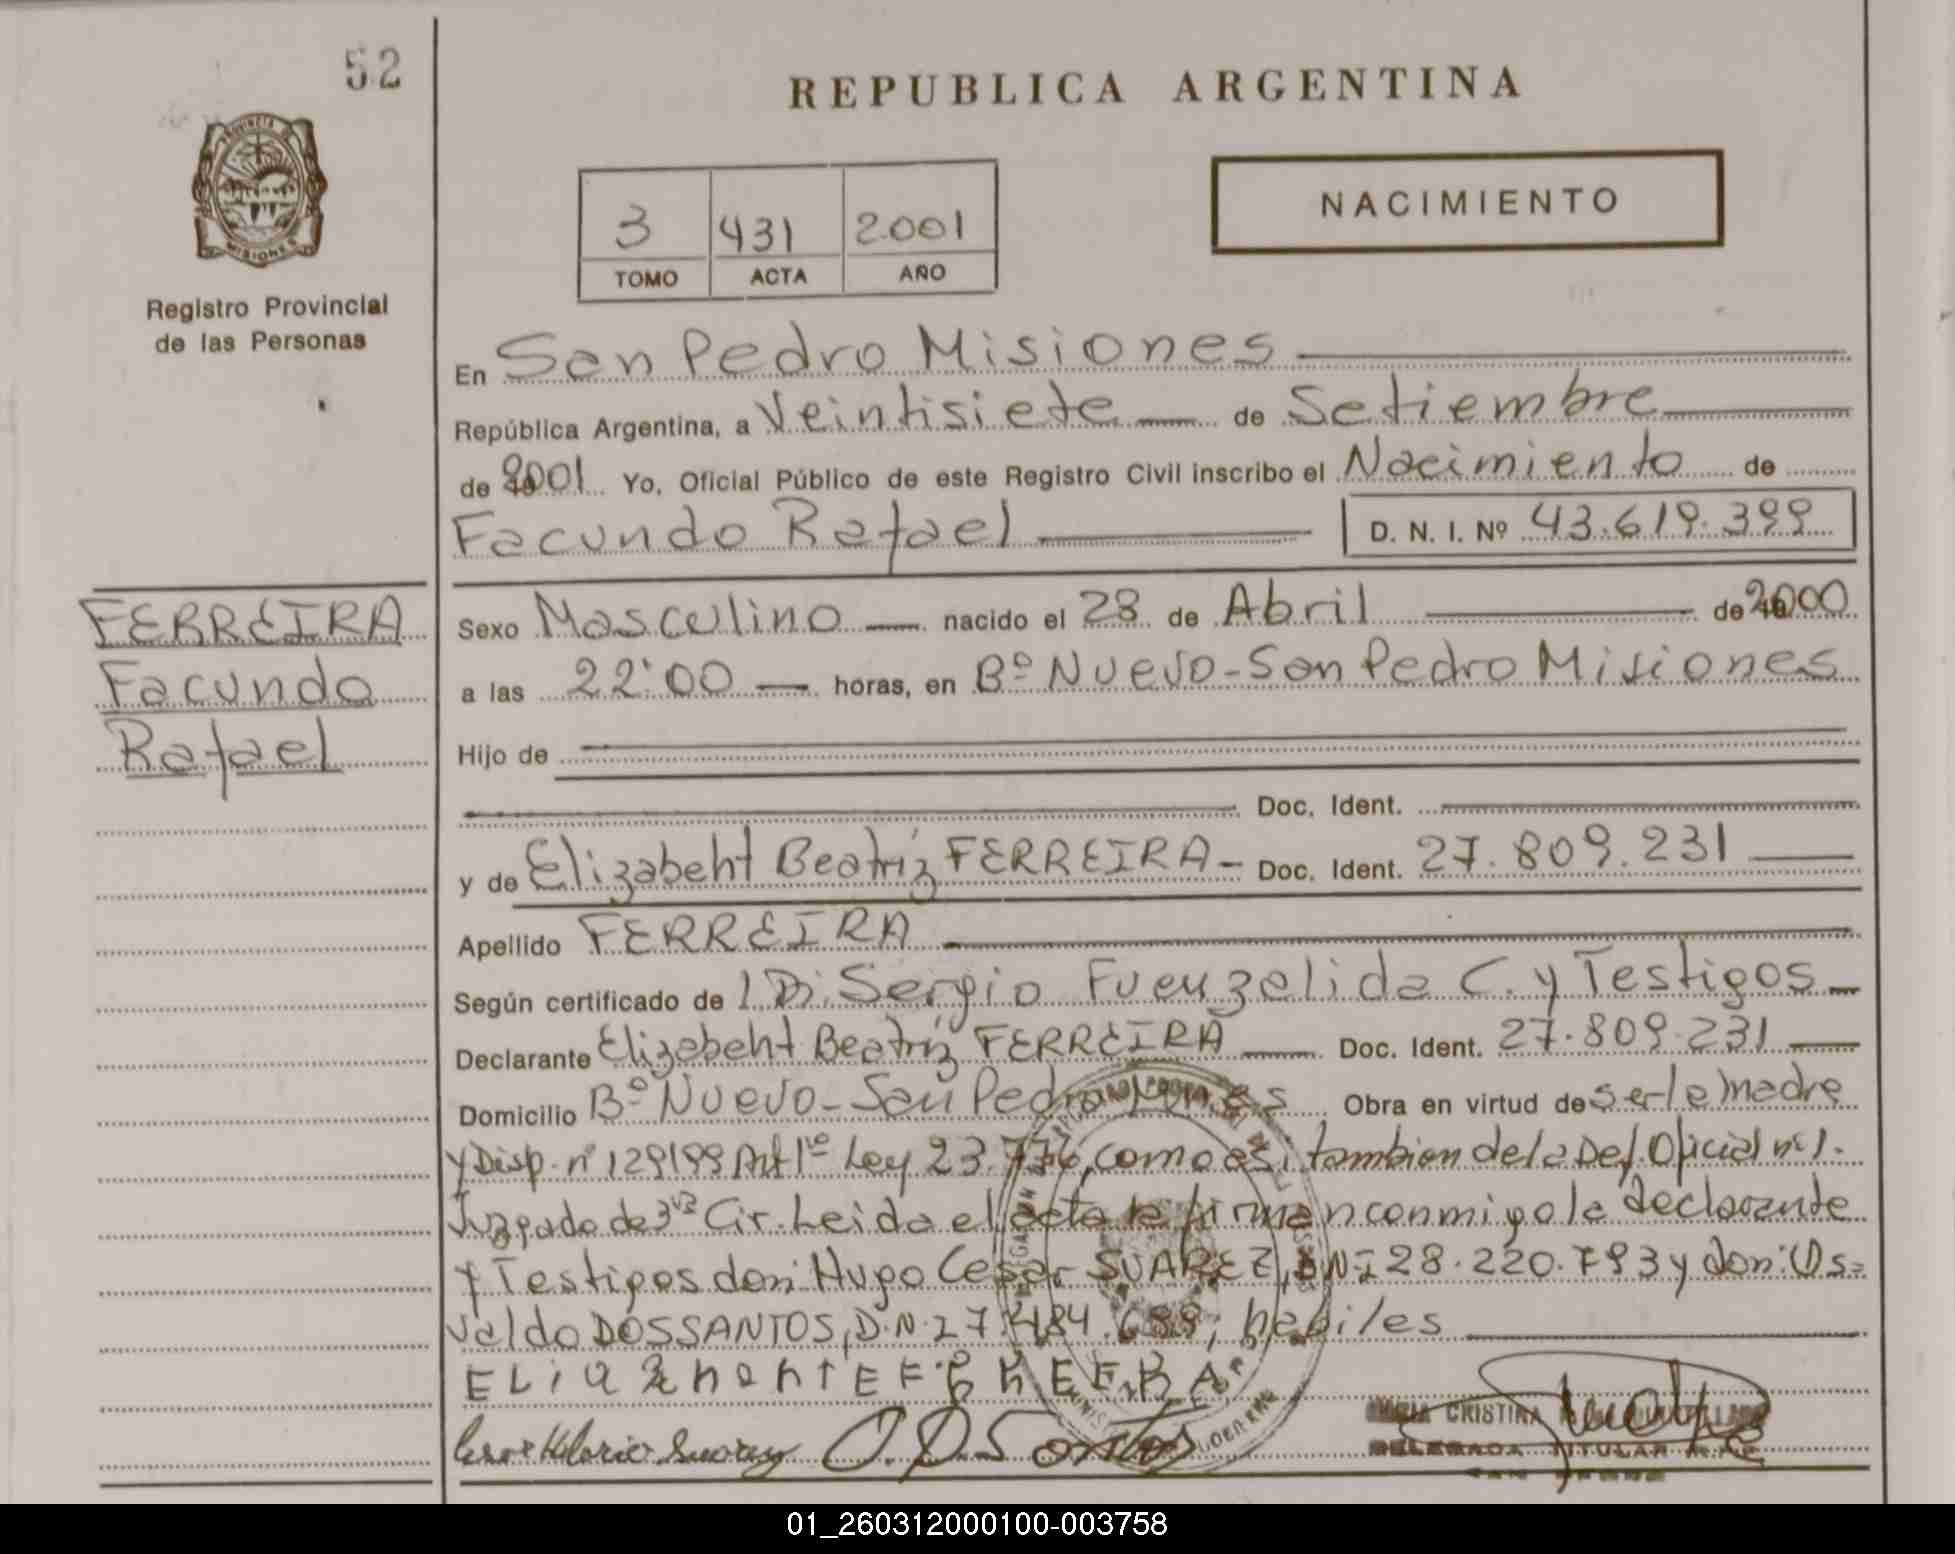 52
REPUBLICA ARGENTINA
PROVINCIA DE
MISIONES
NACIMIENTO
3 431 2001
TOMO ACTA AÑO
Registro Provincial
de las Personas
En San Pedro Misiones
República Argentina, a Veintisiete de Setiembre
de 2001 Yo, Oficial Público de este Registro Civil inscribo el Nacimiento de
Facundo Rafael D. N. I. Nº 43.619.399
FERREIRA
Facundo
Rafael
Sexo Masculino nacido el 28 de Abril de 2000
a las 22:00 horas, en Bº Nuevo - San Pedro Misiones
Hijo de
Doc. Ident.
y de Elizabeht Beatriz FERREIRA - Doc. Ident. 27.809.231
Apellido FERREIRA
Según certificado de Sergio Fuenzalida C. y Testigos
Declarante Elizabeht Beatriz FERREIRA Doc. Ident. 27.809.231
Domicilio Bº Nuevo - San Pedro Obra en virtud de ser la madre
y Disp. nº 129199 Art 1º Ley 23.776, como asi tambien de la Def. Oficial nº 1.
Juzgado de 3ra Cir. Leida el acta la firman conmigo la declarante
y Testigos don: Hugo Cesar SUAREZ, DNI 28.220.793 y don: Os=
valdo DOSSANTOS, D.N. 27.484.688, habiles
MARIA CRISTINA
DELEGADA TITULAR
SAN PEDRO
01_260312000100-003758